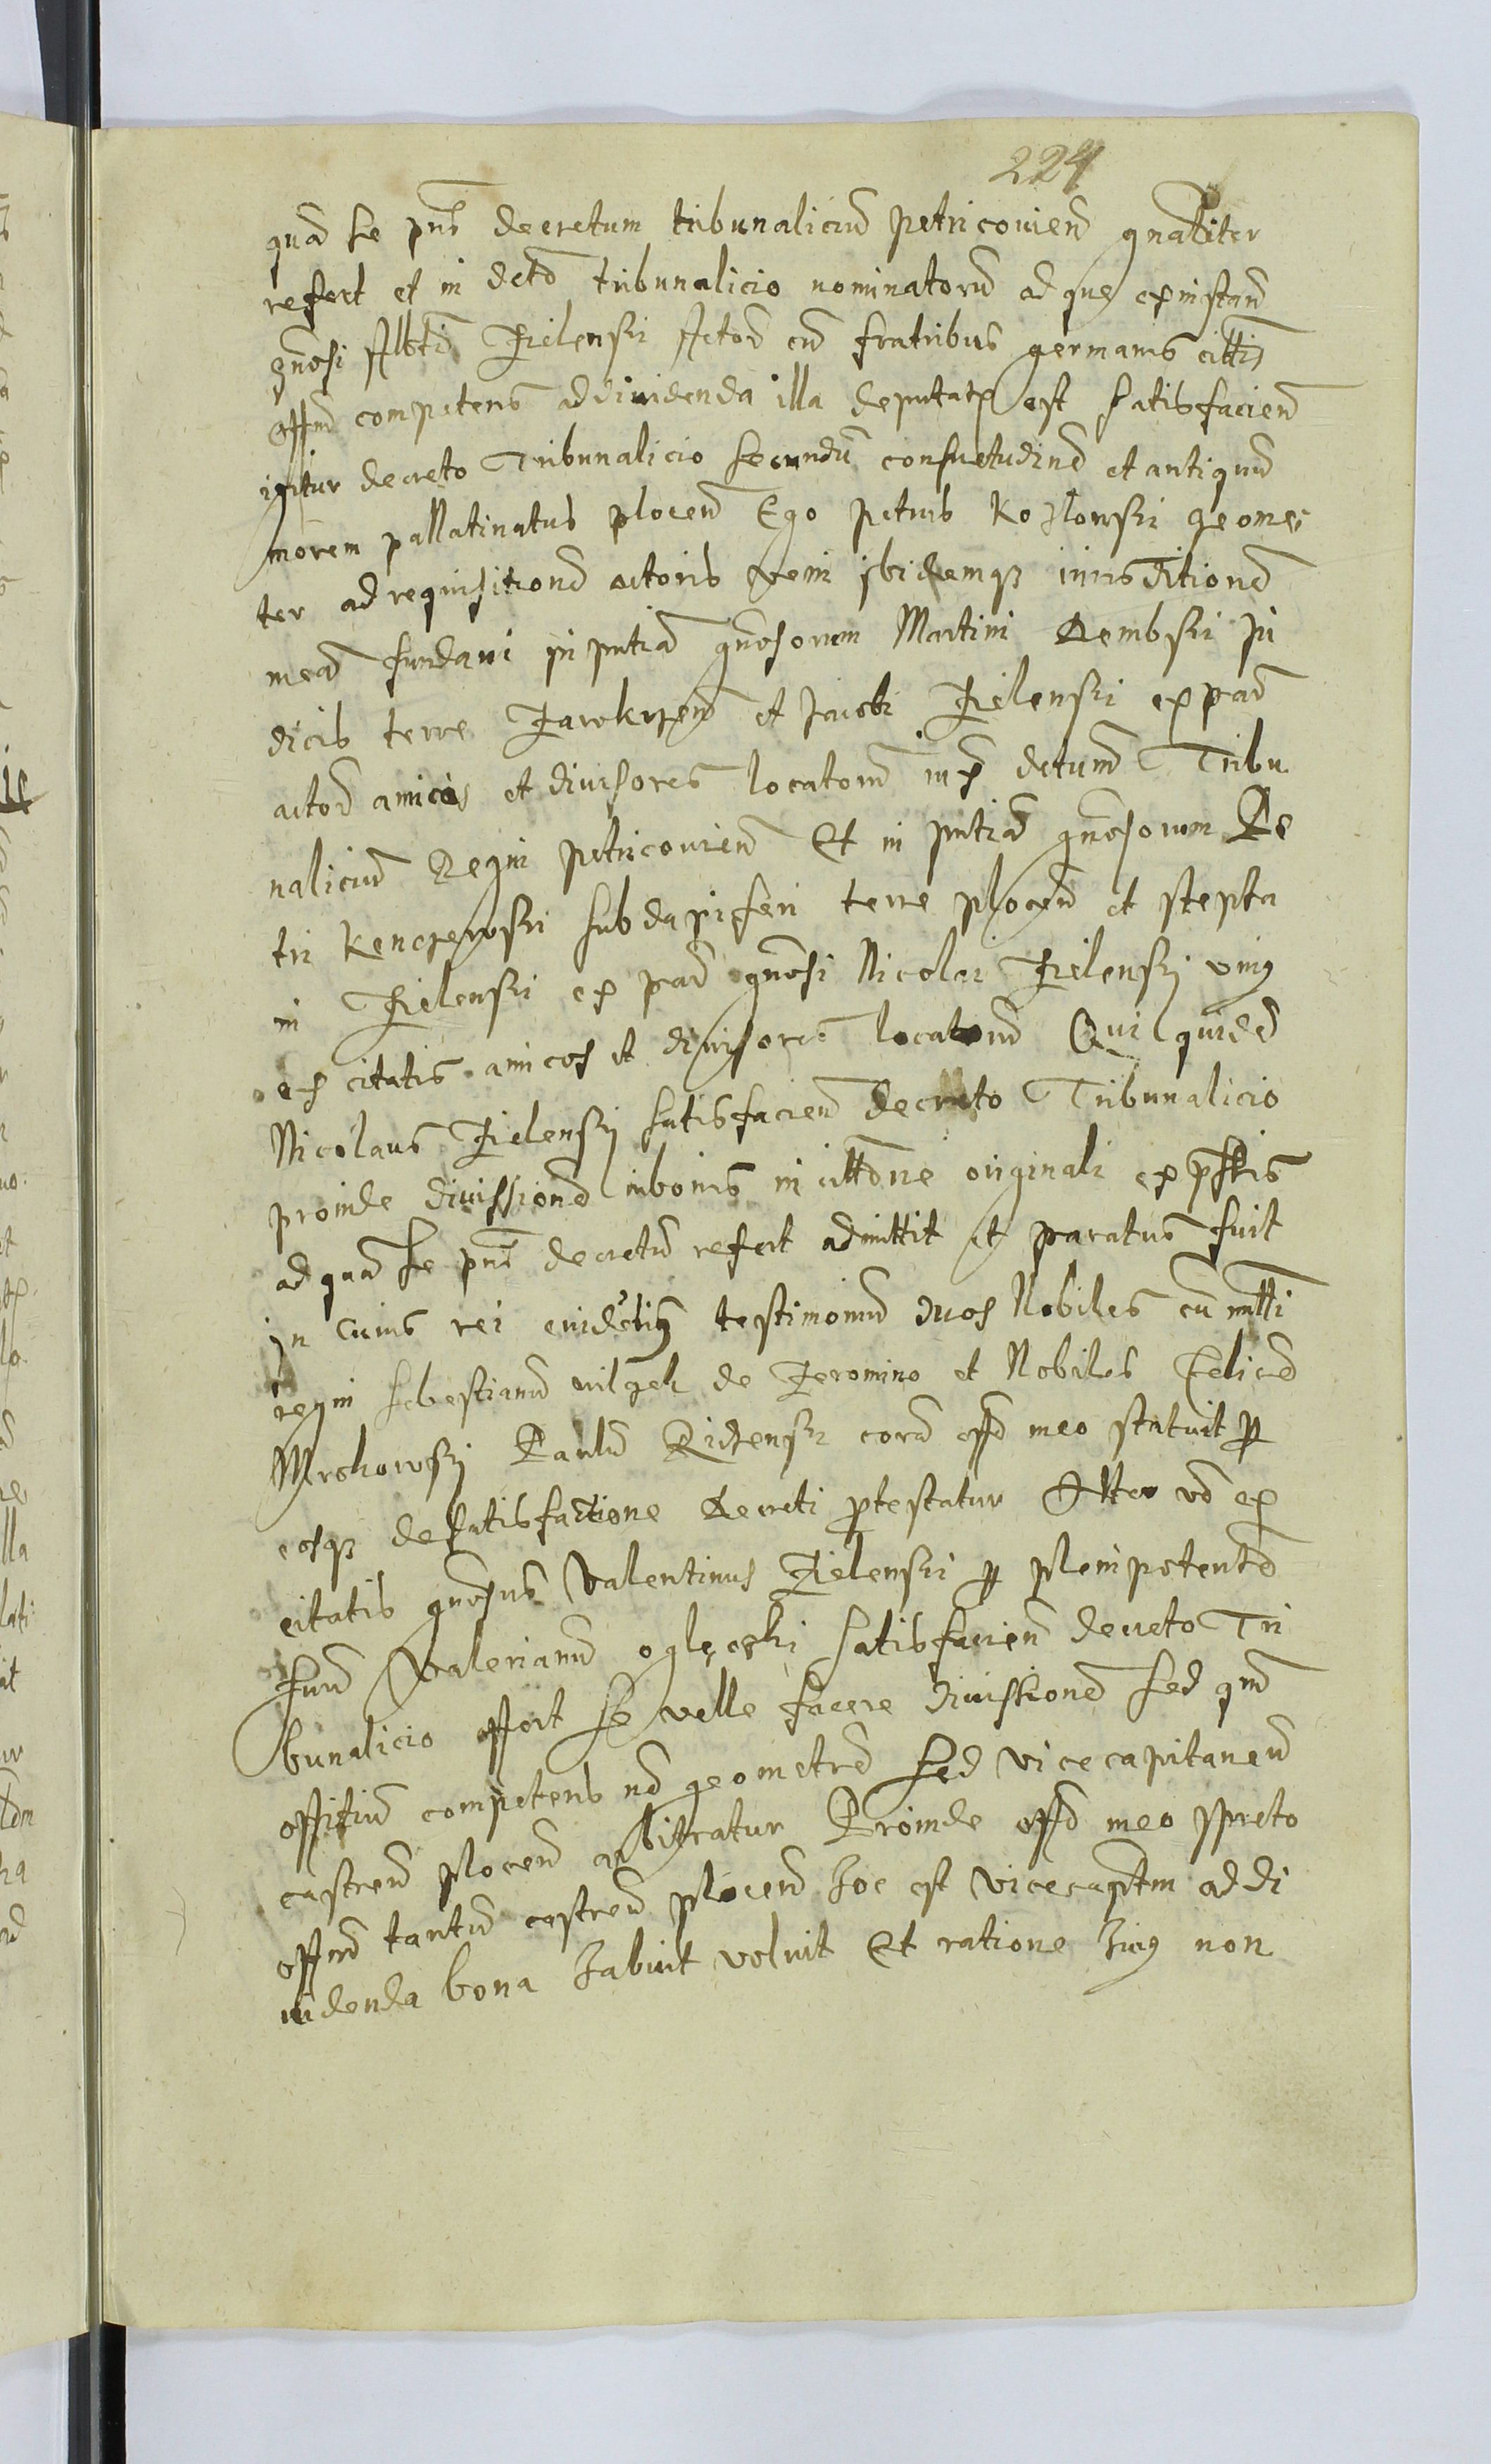 224
quā se pns̄ decretum tribunaliciū petricovien̄ gnāliter
refert et in decto tribunalicio nominatorū ad que ex instan̄
gnosi Albti Zielenski Actor̄ cū fratribus germanis citti
offm̄ competens ad dividenda illa deputat est satisfacien̄
igitur decreto Tribunalicio secundū consuetudinē et antiquū
morem pallatinatus plocen̄ Ego petrus Kozlowski geome
ter ad requisitionē actoris veni ibidemqz iurisditionē
meā fundavi in pntia gnosorum Martini Dembski Ju
dicis terre Zawkrzen̄ et Jacobi Zielenski ex pad
actor̄ amicos et divisores locatorū iux̄ dectum Tribu
nalicium Regni petricovien̄ Et in pntia gnosorum Pe
tri Kenczewski subdapiferi terre plocen̄ et Stepha
ni Zielenski ex pad gnosi Nicolai Zielenski unius
ex citatis amicos et divisores locatorū Qui quidē
Nicolaus Zielenski satisfacien̄ decreto Tribunalicio
proinde divissionē in bonis in citt̄one originali expssis
ad quā se pns̄ decretū refert admittit et paratus fuit
In cuius rei evidētius testimoniū duos Nobiles cū mitti
regni Sebestianū wilgek de Jeromino et Nobiles Felicē
Mrchowski Paulū Ridzenski corā offō meo statuit p
eosqz de satisfactione decreti ptestatur Alter vō ex
citatis gnosus Valentinus Zielenski p plenipotentē
suū Valerianū oglęcki satisfacien̄ decreto Tri
bunalicio offert se velle facere divissionē sed qm̄
offitiū competens nō geometrē sed vicecapitaneū
castren̄ plocen̄ arbitratur Proinde offō meo spreto
offm̄ tantū castren̄ plocen̄ hoc est vicecaptm ad di
videnda bona habuit voluit Et ratione huius non